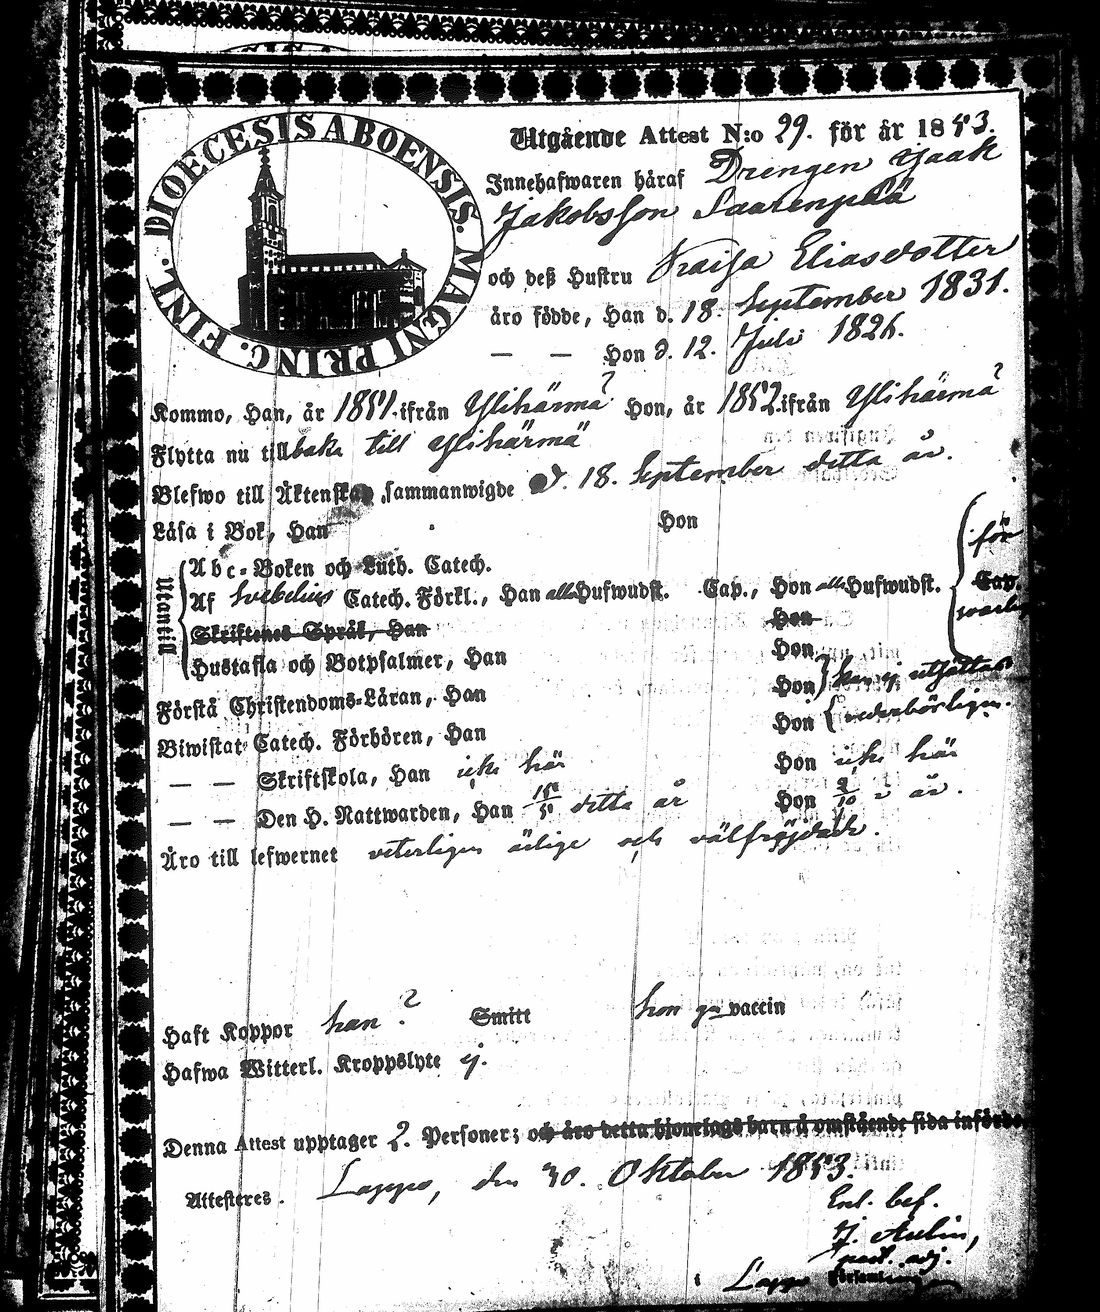 DIOECESIS ABOENSIS. MAGNI PRINC. FINL.
Utgående Attest N:o 29. för år 1853.
Innehafwaren häraf Drengen Jaak
Jakobsson Saarenpää
och deß Hustru Kaisa Eliasdotter
äro födde, Han d. 18. September 1831.
— — Hon d. 12. Juli 1826.
Kommo, Han, år 1851. ifrån Ylihärmä? Hon, år 1852. ifrån Ylihärmä?
Flytta nu tillbaka till Ylihärmä
Blefwo till Äktenskap sammanwigde d. 18. September detta år.
Läsa i Bok, Han Hon
Utantill
Abc-Boken och Luth. Catech.
Af Svebelius Catech. Förkl., Han alla Hufwudst. Cap., Hon alla Hufwudst. Cap.
för
Skriftenes Språk, Han Hon
Hustafla och Botpsalmer, Han Hon
Förstå Christendoms-Läran, Han Hon
Biwistat Catech. Förhören, Han Hon vederbörligen.
— — Skriftskola, Han icke här Hon icke här
— — Den H. Nattwarden, Han 15/5 detta år Hon 2/10 d. år.
Äro till lefwernet veterligen ärlige och välfrejdade.
Haft Koppor han ? Smitt hon vaccin
Hafwa Witterl. Kroppslyte ej.
Denna Attest upptager 2. Personer; och äro detta hjonelags barn å omstående sida införde.
Attesteres. Lappo, den 30. Oktober 1853.
Enl. bef.
past. adj.
Lappo Församling